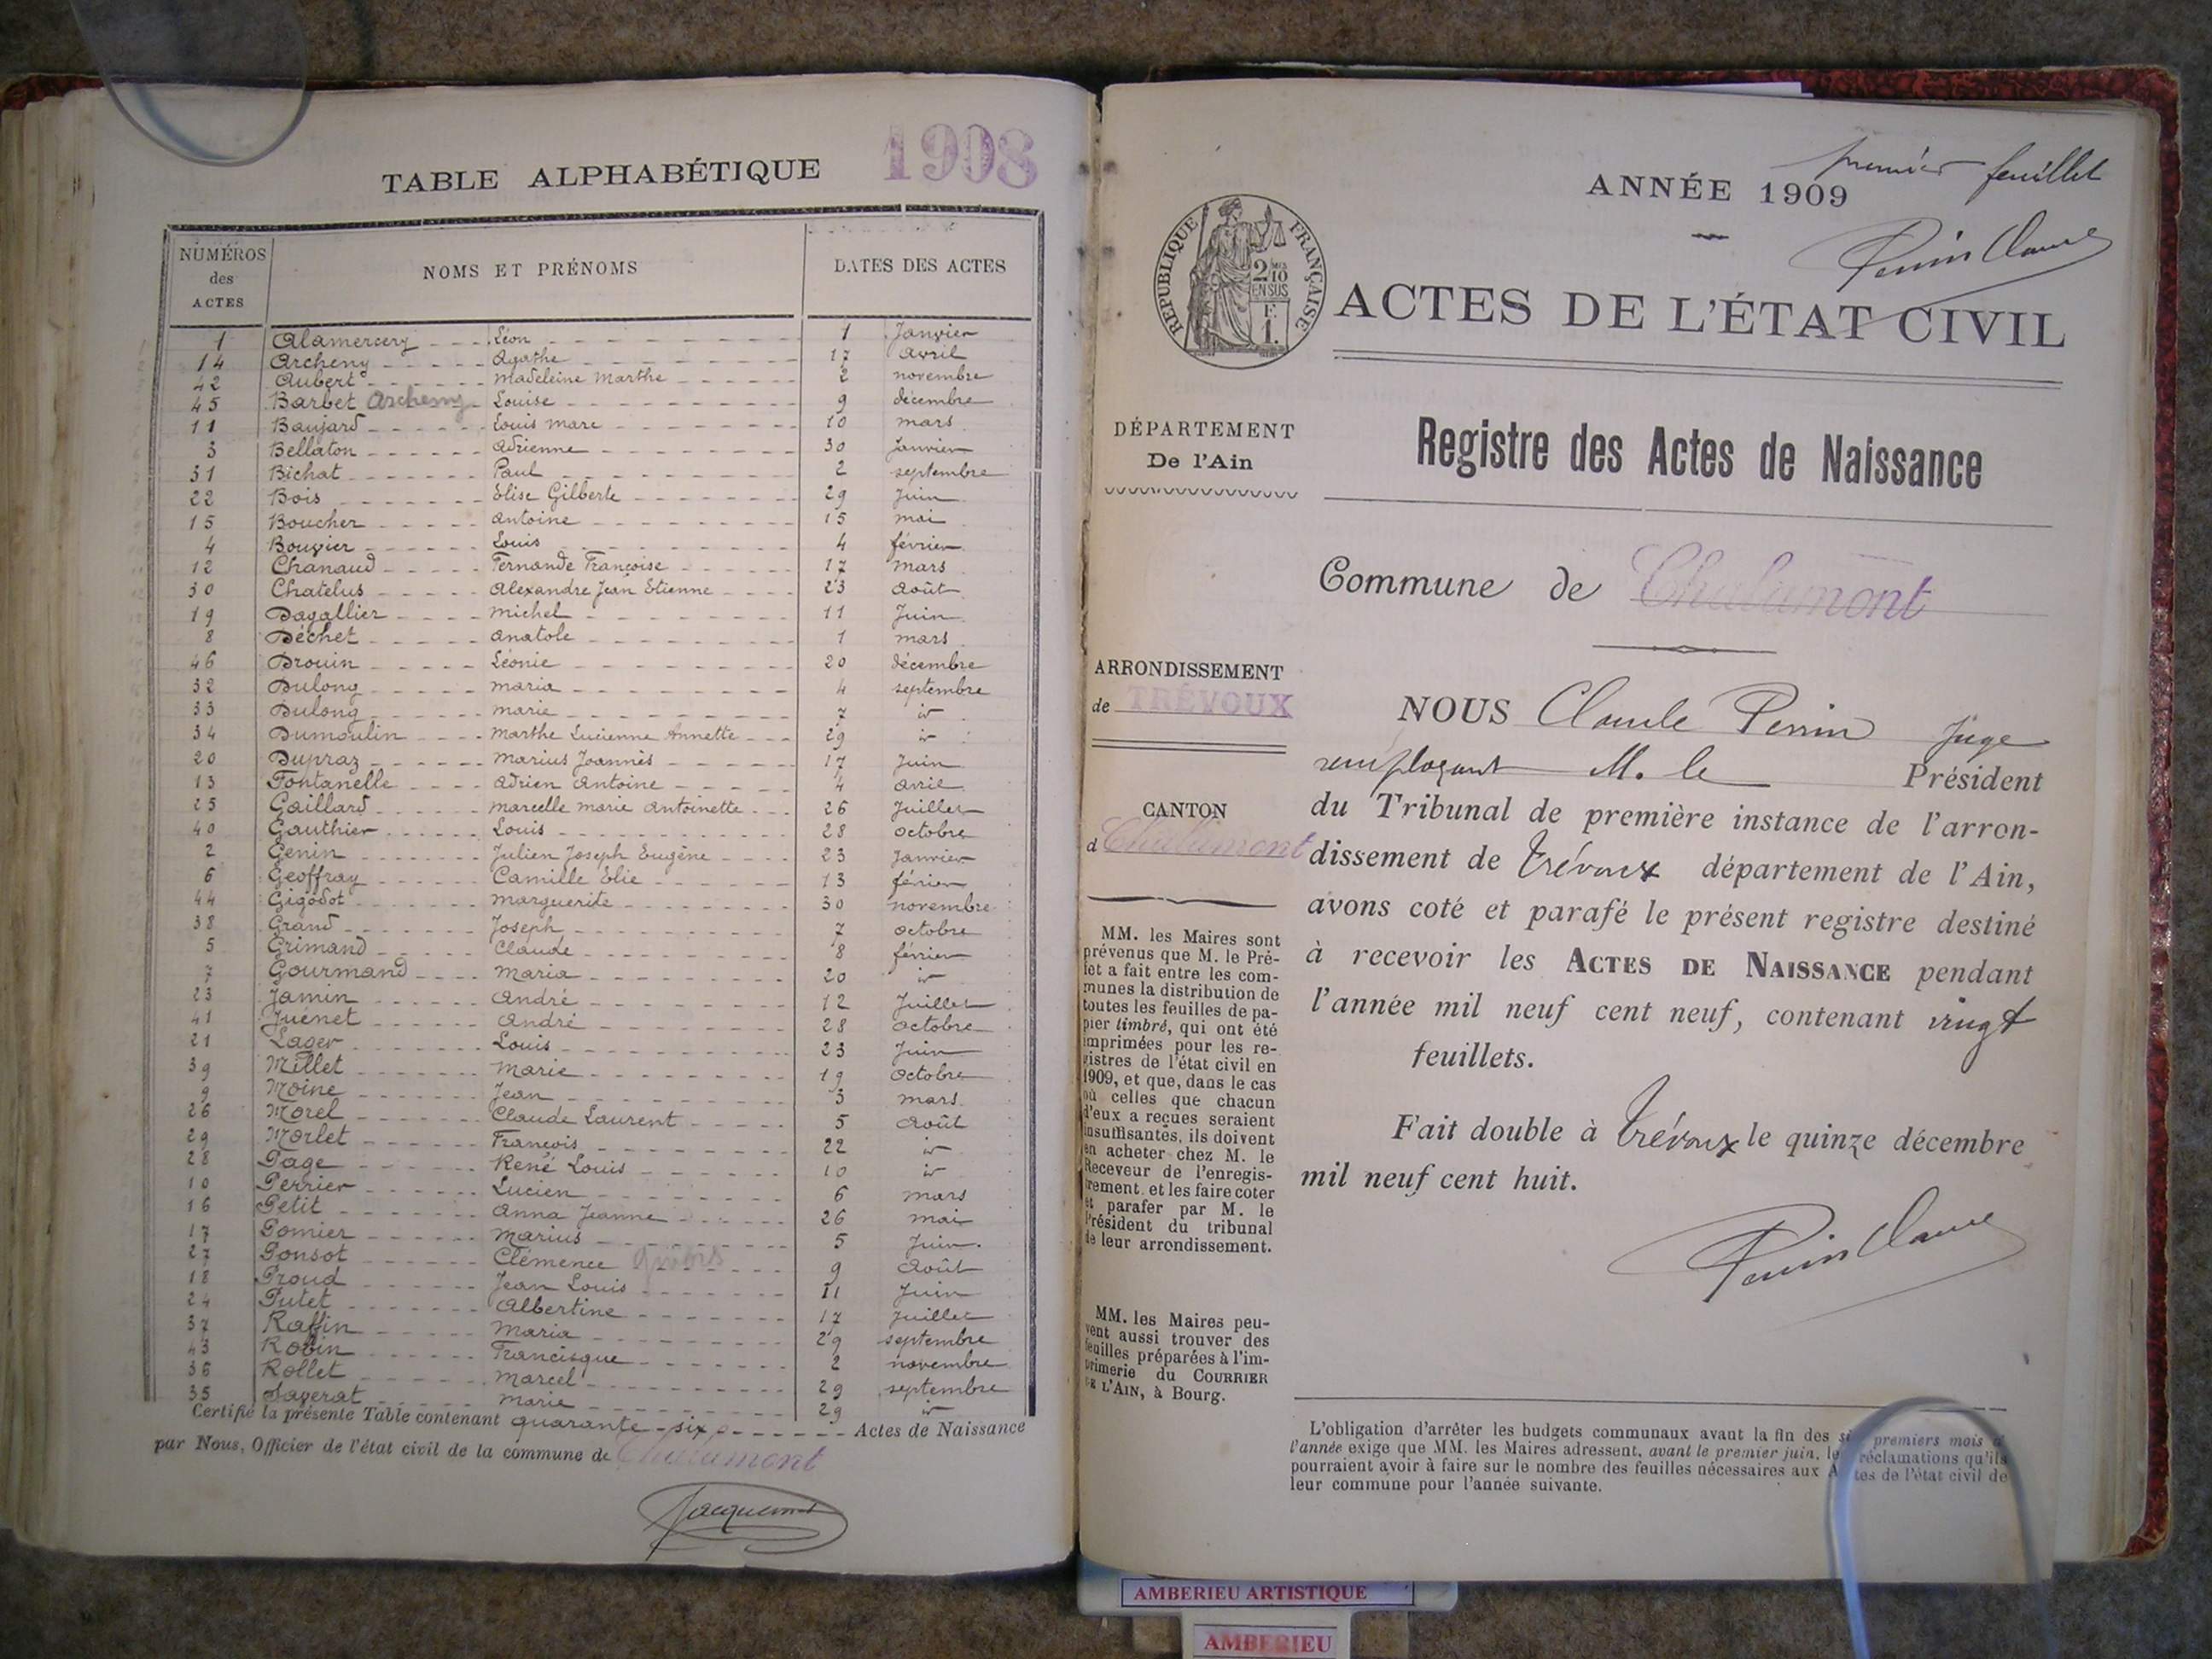 TABLE ALPHABÉTIQUE 1908
NUMÉROS des ACTES NOMS ET PRÉNOMS DATES DES ACTES
1 Alamercery Léon 1 Janvier
14 Archeny Agathe 17 avril
42 Aubert Madeleine Marthe 2 novembre
45 Barbet Archeny Louise 9 décembre
11 Baujard Louis Marc 10 mars
3 Bellaton Adrienne 30 Janvier
31 Bichat Paul 2 septembre
22 Bois Elise Gilberte 29 Juin
15 Boucher Antoine 15 mai
4 Bouvier Louis 4 février
12 Chanaud Fernande Françoise 17 mars
30 Chatelus Alexandre Jean Etienne 23 Août
19 Dagallier Michel 11 Juin
8 Déchet Anatole 1 mars
46 Drouin Léonie 20 décembre
32 Dulong Maria 4 septembre
33 Dulong Marie 7 id
34 Dumoulin Marthe Lucienne Annette 29 id
20 Dupraz Marius Joannès 17 Juin
13 Fontanelle Adrien Antoine 4 avril
25 Gaillard Marcelle Marie Antoinette 26 Juillet
40 Gauthier Louis 28 octobre
2 Genin Julien Joseph Eugène 23 Janvier
6 Geoffray Camille Elie 13 février
44 Gigodot Marguerite 30 novembre
38 Grand Joseph 7 octobre
5 Grimand Claude 8 février
7 Gourmand Maria 20 id
23 Jamin André 12 Juillet
41 Juenet André 28 octobre
21 Lager Louis 23 Juin
39 Millet Marie 19 octobre
9 Moine Jean 3 mars
26 Morel Claude Laurent 5 Août
29 Morlet François 22 id
28 Page René Louis 10 id
10 Perrier Lucien 6 mars
16 Petit Anna Jeanne 26 mai
17 Pomier Marius 5 Juin
27 Ponsot Clémence 9 Août
18 Proud Jean Louis 11 Juin
24 Putet Albertine 17 Juillet
37 Raffin Maria 29 septembre
43 Robin Francisque 2 novembre
36 Rollet Marcel 29 septembre
35 Saverat Marie 29 id
Certifié la présente Table contenant quarante-six Actes de Naissance
par Nous, Officier de l'état civil de la commune de Chalamont
Jacquemot
premier feuillet
ANNÉE 1909
Perrin Claude
RÉPUBLIQUE FRANÇAISE
2/10 EN SUS
F. 1.
ACTES DE L'ÉTAT CIVIL
DÉPARTEMENT
De l'Ain
Registre des Actes de Naissance
Commune de Chalamont
ARRONDISSEMENT
de TRÉVOUX
CANTON
d Chalamont
MM. les Maires sont
prévenus que M. le Pré-
fet a fait entre les com-
munes la distribution de
toutes les feuilles de pa-
pier timbré, qui ont été
imprimées pour les re-
gistres de l'état civil en
1909, et que, dans le cas
où celles que chacun
d'eux a reçues seraient
insuffisantes, ils doivent
en acheter chez M. le
Receveur de l'enregis-
trement et les faire coter
et parafer par M. le
Président du tribunal
de leur arrondissement.
MM. les Maires peu-
vent aussi trouver des
feuilles préparées à l'im-
primerie du COURRIER
DE L'AIN, à Bourg.
NOUS Claude Perrin Juge
remplaçant M. le Président
du Tribunal de première instance de l'arron-
dissement de Trévoux département de l'Ain,
avons coté et parafé le présent registre destiné
à recevoir les ACTES DE NAISSANCE pendant
l'année mil neuf cent neuf, contenant vingt
feuillets.
Fait double à Trévoux le quinze décembre
mil neuf cent huit.
Perrin Claude
L'obligation d'arrêter les budgets communaux avant la fin des six premiers mois de
l'année exige que MM. les Maires adressent, avant le premier juin, les réclamations qu'ils
pourraient avoir à faire sur le nombre des feuilles nécessaires aux Actes de l'état civil de
leur commune pour l'année suivante.
AMBERIEU ARTISTIQUE
AMBERIEU